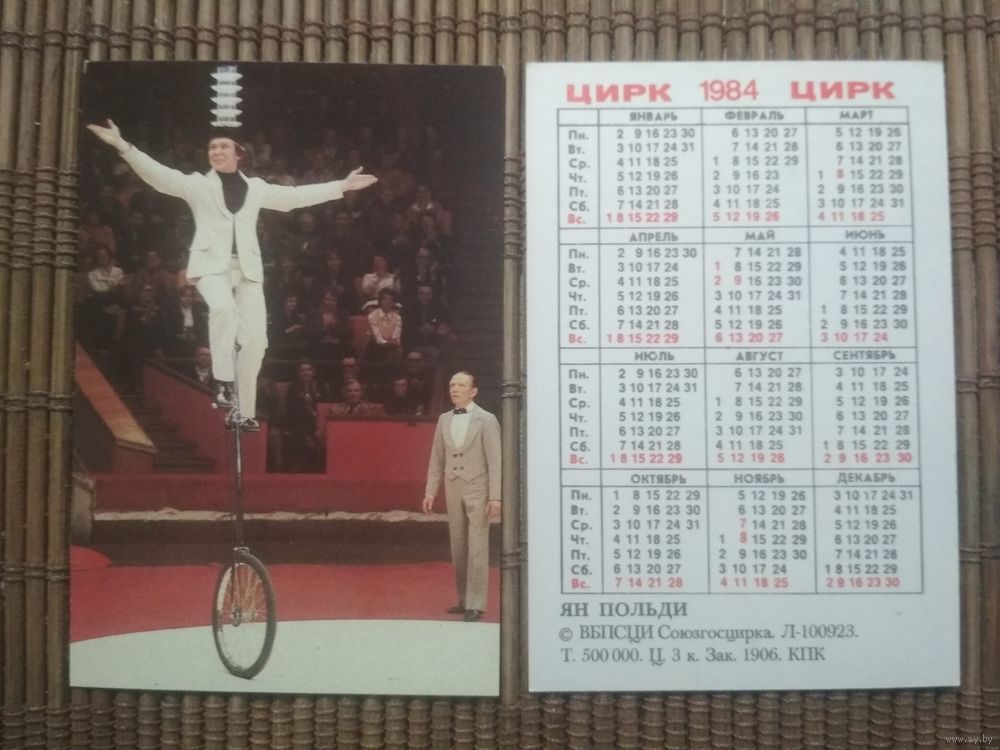 ЦИРК 1984 ЦИРК
ЯНВАРЬ ФЕВРАЛЬ МАРТ
Пн. 2 9 16 23 30 6 13 20 27 5 12 19 26
Вт. 3 10 17 24 31 7 14 21 28 6 13 20 27
Ср. 4 11 18 25 1 8 15 22 29 7 14 21 28
Чт. 5 12 19 26 2 9 16 23 1 8 15 22 29
Пт. 6 13 20 27 3 10 17 24 2 9 16 23 30
Сб. 7 14 21 28 4 11 18 25 3 10 17 24 31
Вс. 1 8 15 22 29 5 12 19 26 4 11 18 25
АПРЕЛЬ МАЙ ИЮНЬ
Пн. 2 9 16 23 30 7 14 21 28 4 11 18 25
Вт. 3 10 17 24 1 8 15 22 29 5 12 19 26
Ср. 4 11 18 25 2 9 16 23 30 6 13 20 27
Чт. 5 12 19 26 3 10 17 24 31 7 14 21 28
Пт. 6 13 20 27 4 11 18 25 1 8 15 22 29
Сб. 7 14 21 28 5 12 19 26 2 9 16 23 30
Вс. 1 8 15 22 29 6 13 20 27 3 10 17 24
ИЮЛЬ АВГУСТ СЕНТЯБРЬ
Пн. 2 9 16 23 30 6 13 20 27 3 10 17 24
Вт. 3 10 17 24 31 7 14 21 28 4 11 18 25
Ср. 4 11 18 25 1 8 15 22 29 5 12 19 26
Чт. 5 12 19 26 2 9 16 23 30 6 13 20 27
Пт. 6 13 20 27 3 10 17 24 31 7 14 21 28
Сб. 7 14 21 28 4 11 18 25 1 8 15 22 29
Вс. 1 8 15 22 29 5 12 19 26 2 9 16 23 30
ОКТЯБРЬ НОЯБРЬ ДЕКАБРЬ
Пн. 1 8 15 22 29 5 12 19 26 3 10 17 24 31
Вт. 2 9 16 23 30 6 13 20 27 4 11 18 25
Ср. 3 10 17 24 31 7 14 21 28 5 12 19 26
Чт. 4 11 18 25 1 8 15 22 29 6 13 20 27
Пт. 5 12 19 26 2 9 16 23 30 7 14 21 28
Сб. 6 13 20 27 3 10 17 24 1 8 15 22 29
Вс. 7 14 21 28 4 11 18 25 2 9 16 23 30
ЯН ПОЛЬДИ
© ВБПСЦИ Союзгосцирка. Л-100923.
Т. 500 000. Ц. 3 к. Зак. 1906. КПК
www.ay.by